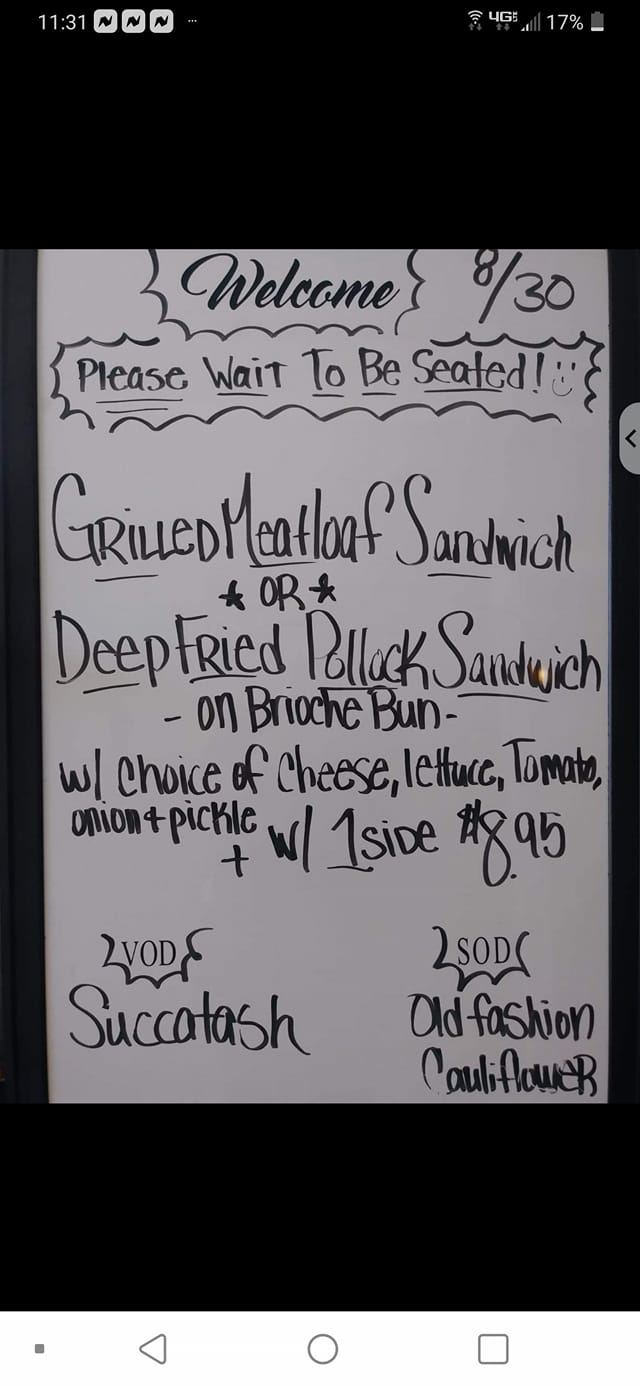 11:31 ... 4GE 17%
Welcome 8/30
Please Wait To Be Seated!
GRILLED Meatloaf Sandwich
* OR *
Deep FRied Pollock Sandwich
- on Brioche Bun -
w/ choice of Cheese, lettuce, Tomato,
onion + pickle
+ w/ 1 side $8.95
VOD
Succatash
SOD
Old fashion
CauliflowER